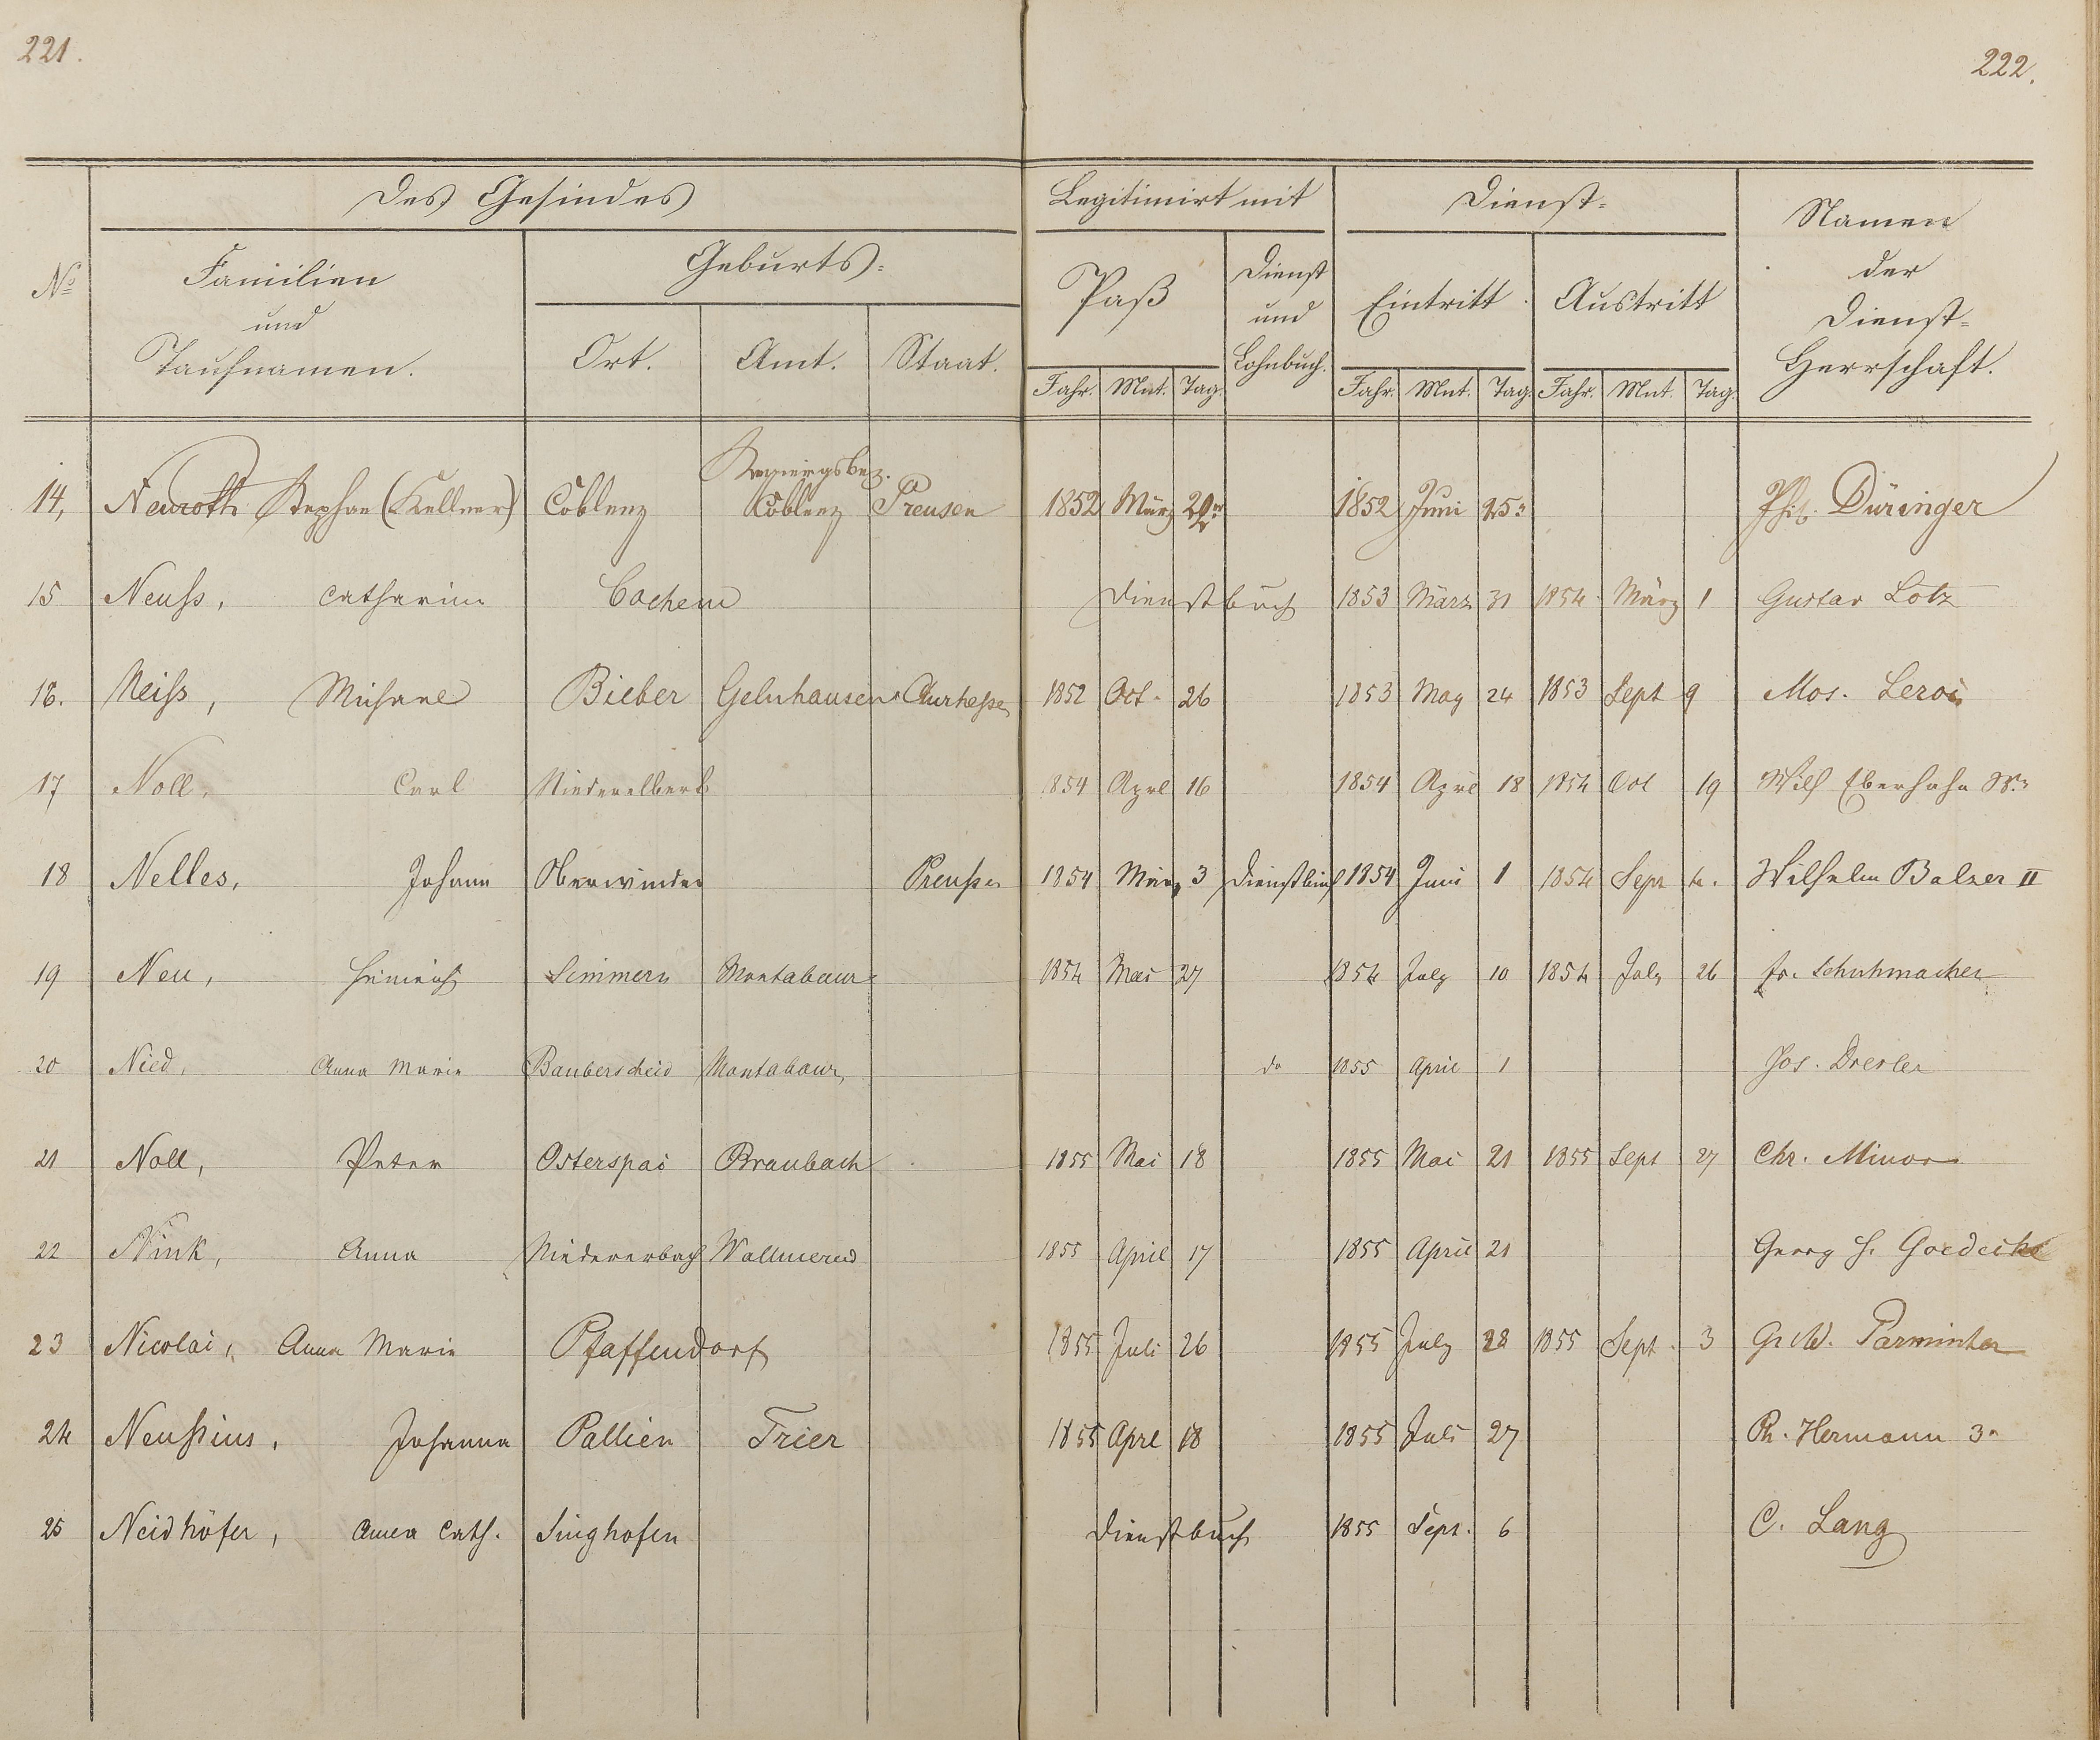 221.
222.
Des Gesindes
Legitimirt mit
Dienst-
Namen
der
Dienst-
Herrschaft.
No
Familien
und
Taufnamen.
Geburts-
Ort. Amt. Staat.
Paß
Dienst
und
Lohnbuch.
Eintritt
Austritt
Jahr. Mnt. Tag.
Jahr. Mnt. Tag. Jahr. Mnt. Tag.
14, Neuroth Stephan (Kellner) Coblenz Regiergsbez. Coblenz Preusen 1852 März 1852 Juni 25: Phil. Düringer
15 Neuss, Catharina Cochem Dienstbuch 1853 März 31 1854 März 1 Gustav Lotz
16. Neiss, Bieber Gelnhausen Churhessen 1852 Oct. 26 1853 May 24 1853 Sept 9 Mos. Leroi
17 Noll, Carl Niederelbert 1854 Aprl 16 1854 Aprl 18 1854 Oct 19 Wilh Eberhahn
18 Nelles, Johann Oberwinter Preußen 1854 März 3 Dienstbuch 1854 Juni 1 1854 Sept 4. Wilhelm Balzer II
19 Neu, Heinrich Simmern Montabaur 1854 Mai 27 1854 July 10 1854 July 26 Fr. Schuhmacher
20 Nied, Anna Marie Montabaur, do 1855 April 1 Jos. Dresler
21 Noll, Peter Osterspai Braubach 1855 Mai 18 1855 Mai 21 1855 Sept 27 Chr. Minor
22 Nink, Anna Niedererbach Wallmerod 1855 April 17 1855 April 21 Georg H. Goedecke
23 Nicolai, Anna Marie Pfaffendorf 1855 Juli 26 1855 July 28 1855 Sept. 3 G. W. Parminter
24 Neußius, Johanna Pallien Trier 1855 Aprl 18 1855 Juli 27 Ph. Hermann 3r
25 Neidhöfer, Anna Cath. Singhofen Dienstbuch 1855 Sept. 6 C. Lang